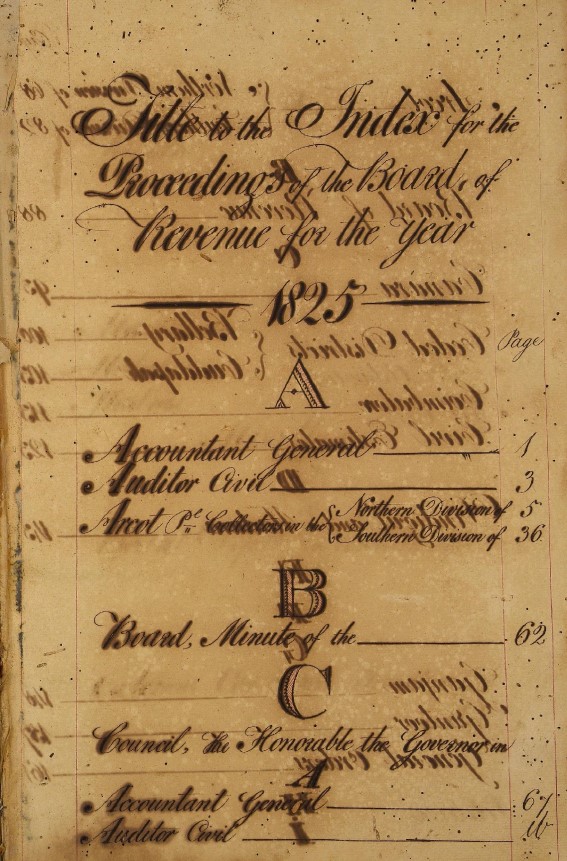 Title to the Index for the
Proceedings of the Board of
Revenue for the Year
1825
Page
A
Accountant General 1
Auditor Civil 3
Arcot Pl. Collector in the { Northern Division of 5
Southern Division of 36
B
Board, Minute of the 62
C
Council, the Honorable the Governor in
A
Accountant General 67
Auditor Civil ib